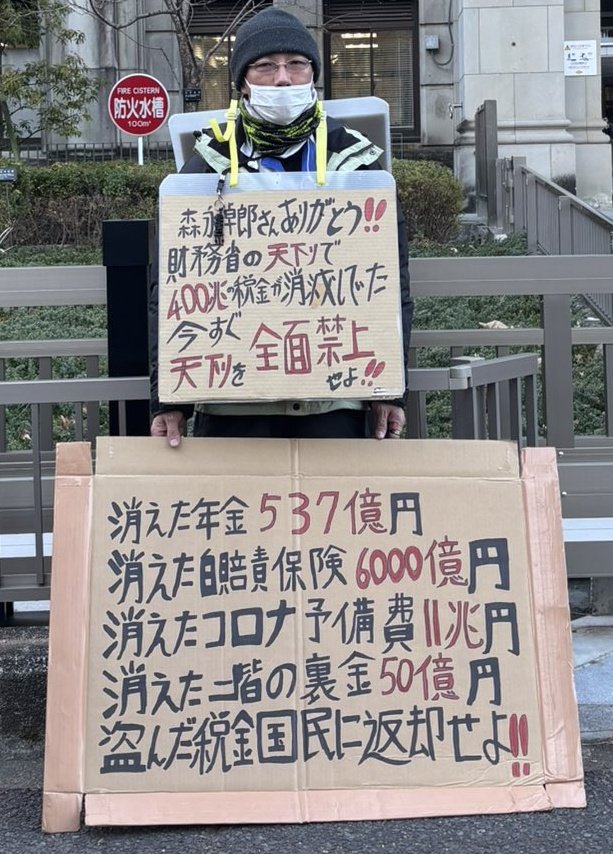 FIRE CISTERN
防火水槽
100m³
森永幹郎さんありがとう!!
財務省の天下りで
400兆の税金が消滅してた
今すぐ
天下りを全面禁止
せよ!!
消えた年金537億円
消えた自賠責保険6000億円
消えたコロナ予備費11兆円
消えた二階の裏金50億円
盗んだ税金国民に返却せよ!!